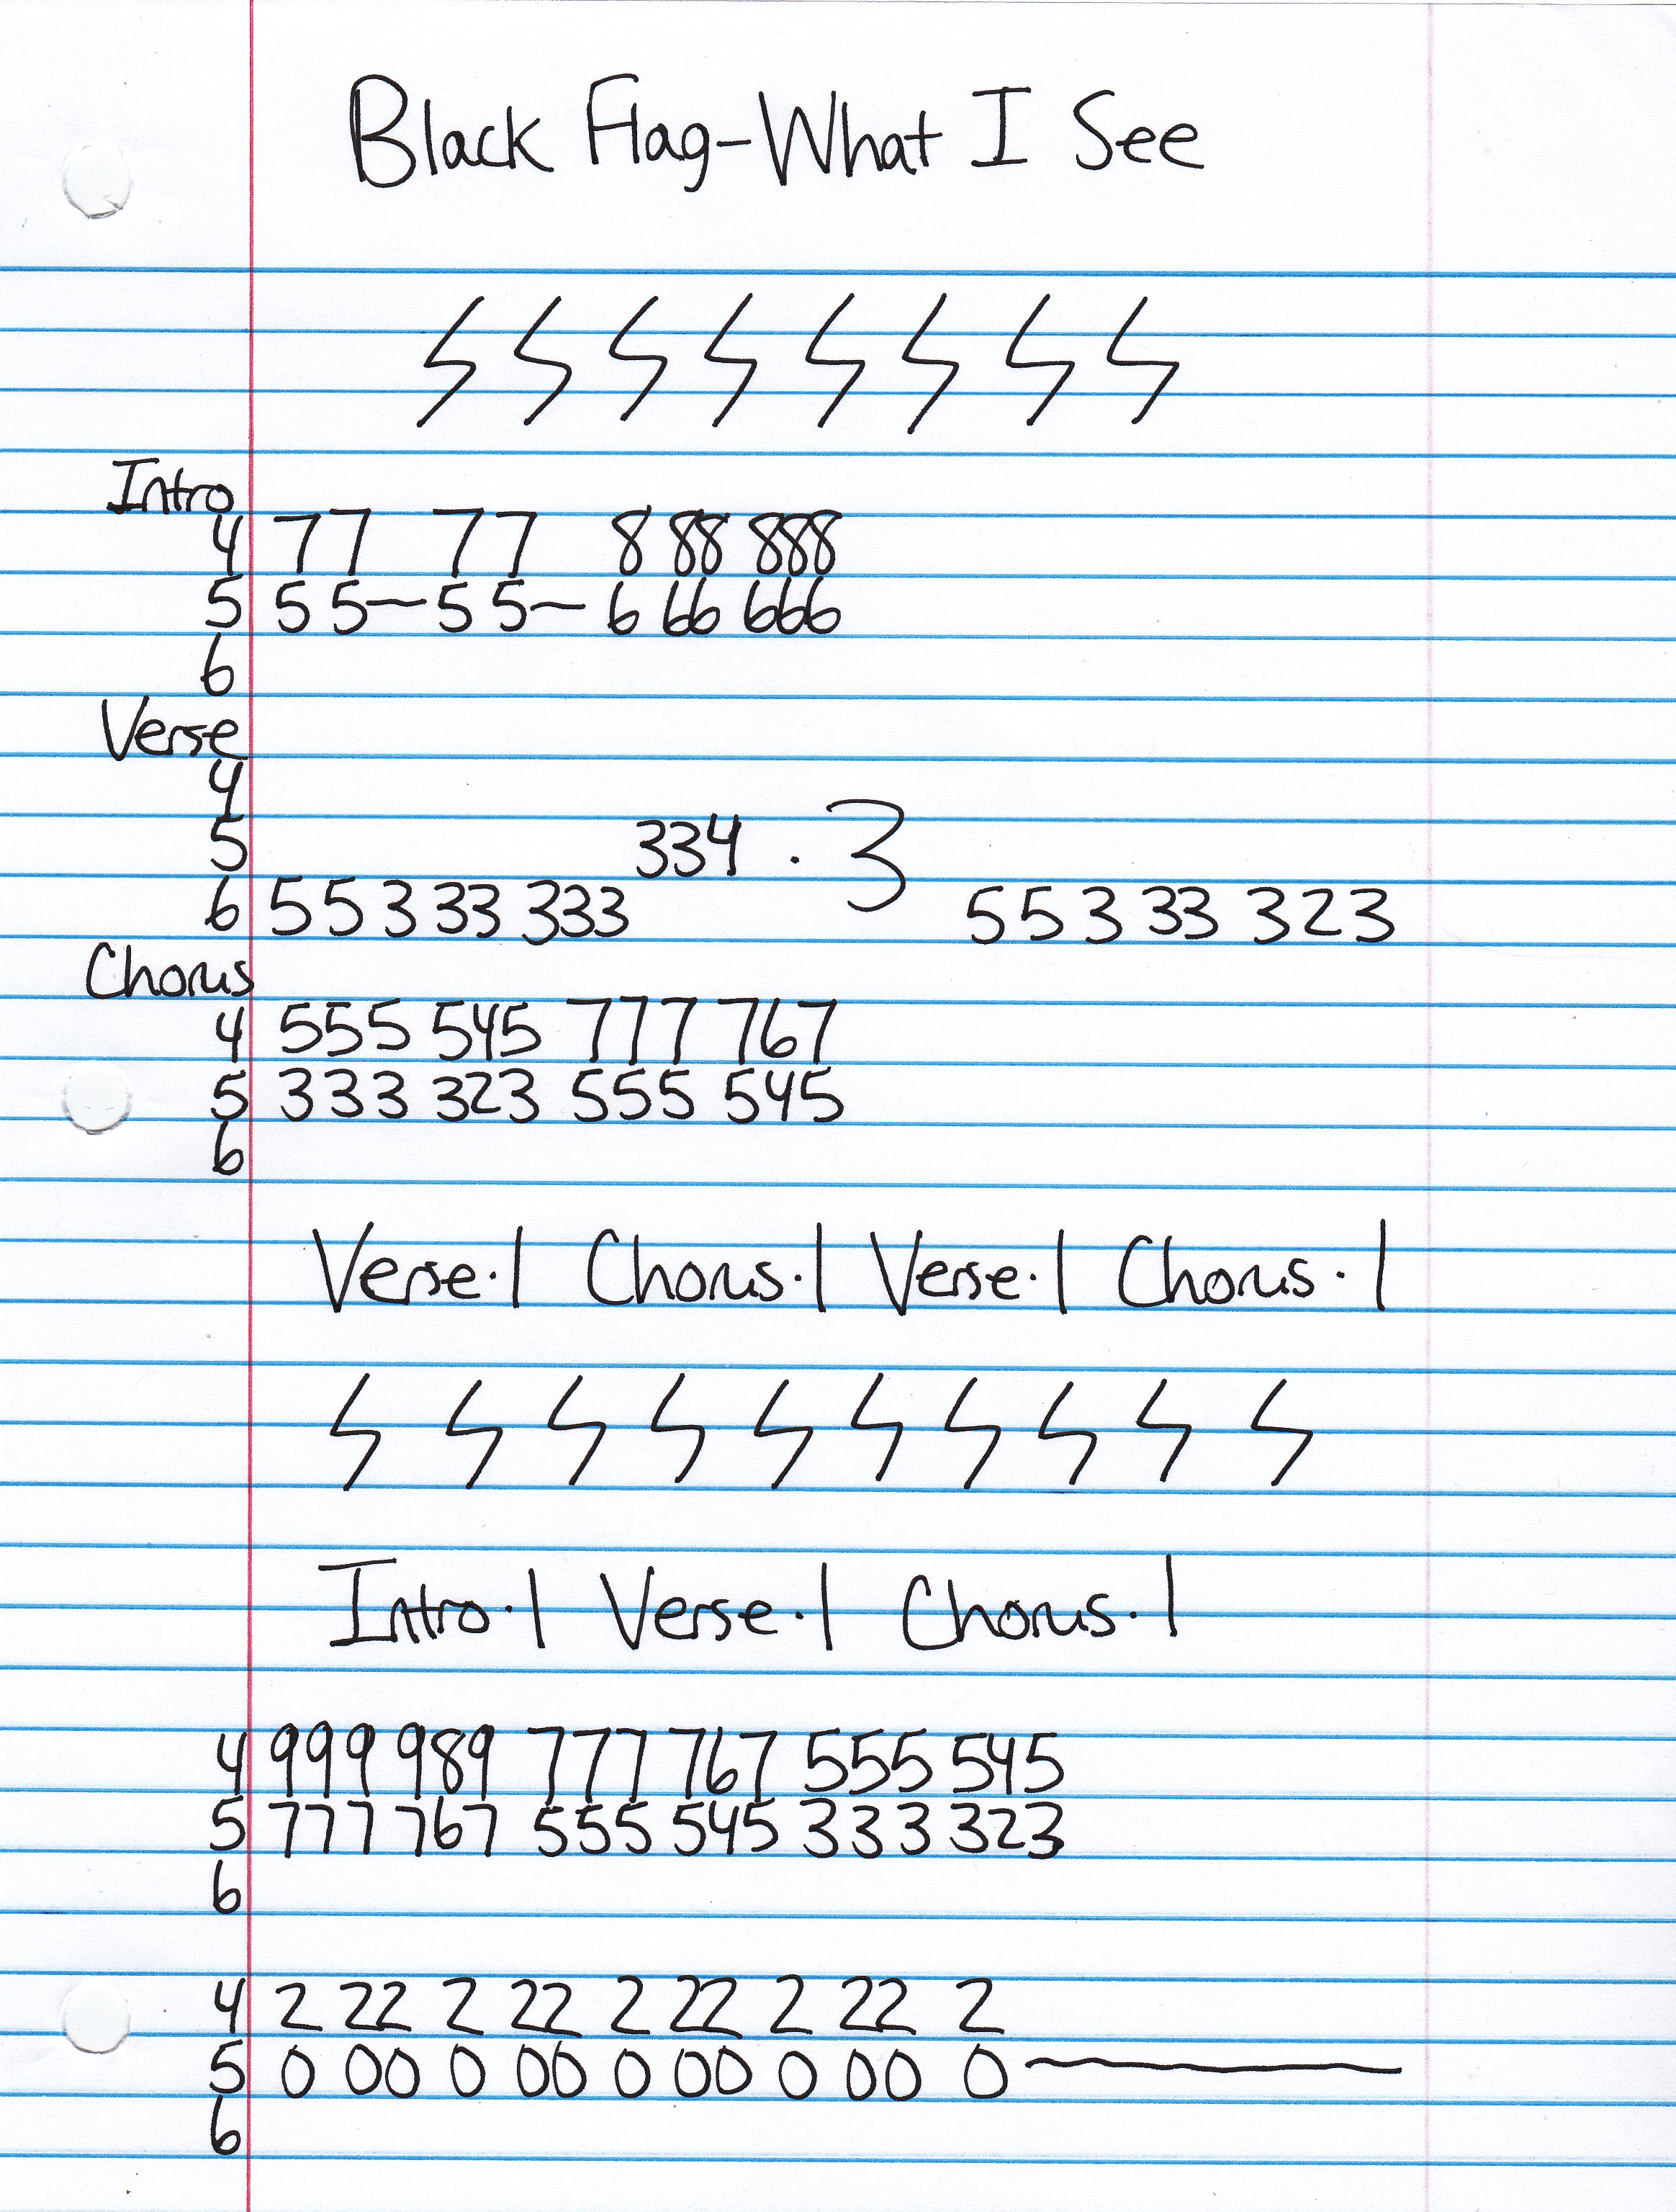 Black Flag-What I See
Intro
4 77 77 8 88 888
5 55—55— 6 66 666
6
Verse
4
5 334 · 3
6 5 5 3 33 333 5 5 3 33 3 2 3
Chorus
4 555 545 777 767
5 333 323 555 545
6
Verse·1 Chorus·1 Verse·1 Chorus·1
Intro·1 Verse·1 Chorus·1
4 999 989 777 767 555 545
5 777 767 555 545 333 323
6
4 2 22 2 22 2 22 2 22 2
5 0 00 0 00 0 00 0 00 0—
6